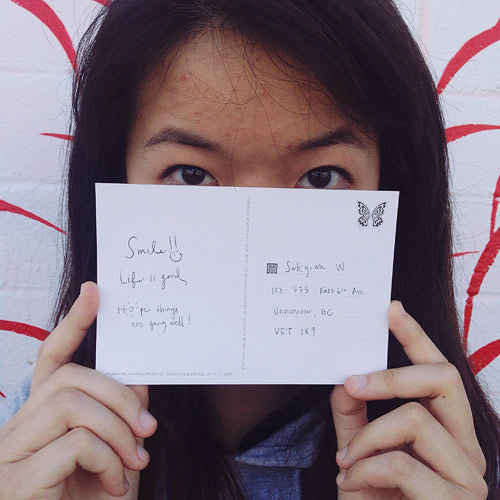 Smile!!
Life is good,
Hope things
are going well!
W
East 6th Ave
Vancouver, BC
V5T 1K9